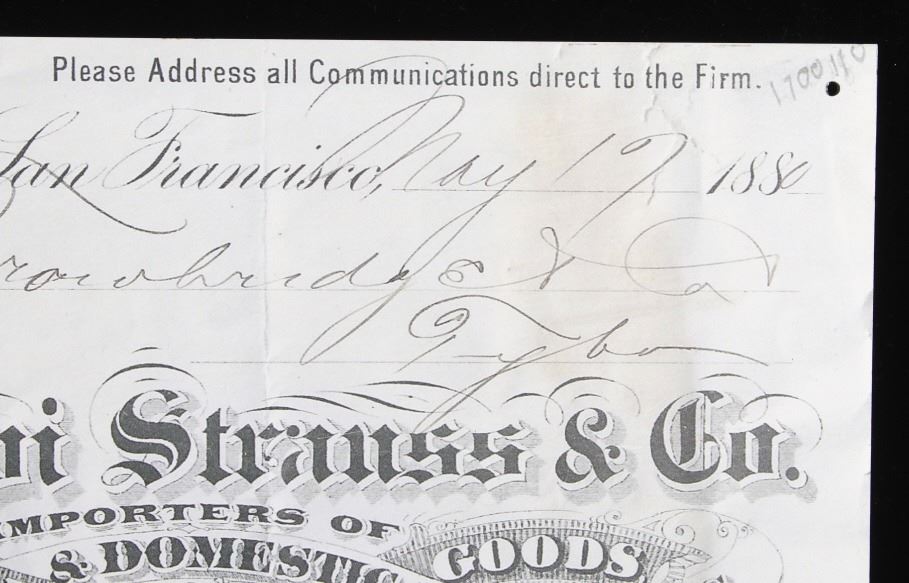 Please Address all Communications direct to the Firm.
170011 0
San Francisco, May 17 1880
rowbridge & Co
Tybo
vi Strauss & Co.
IMPORTERS OF
& DOMESTIC GOODS